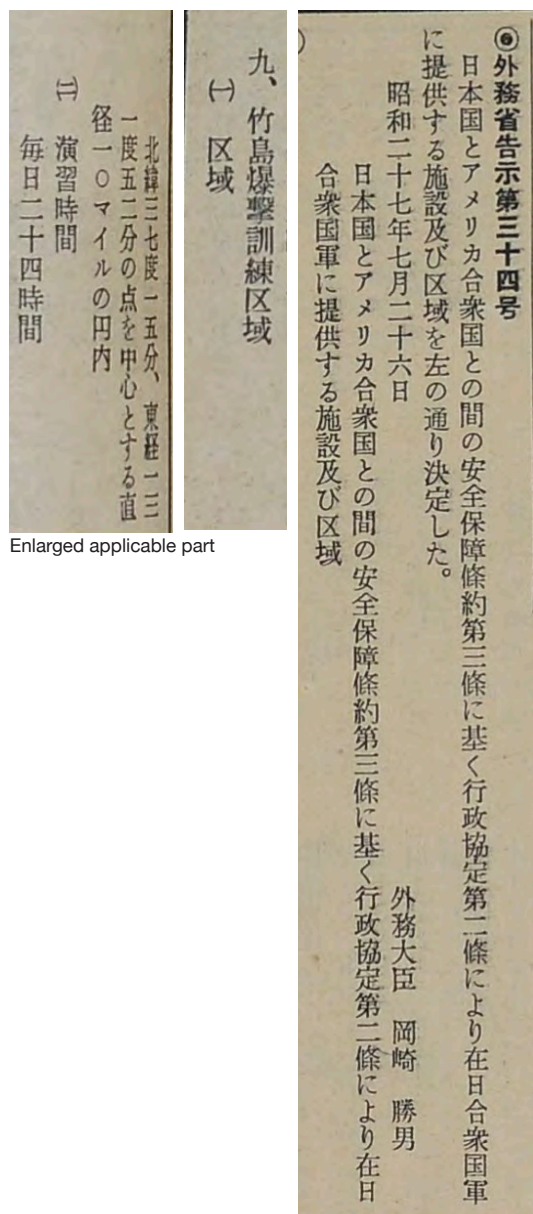 ◉外務省告示第三十四号
日本国とアメリカ合衆国との間の安全保障條約第三條に基く行政協定第二條により在日合衆国軍
に提供する施設及び区域を左の通り決定した。
昭和二十七年七月二十六日
外務大臣 岡崎 勝男
日本国とアメリカ合衆国との間の安全保障條約第三條に基く行政協定第二條により在日
合衆国軍に提供する施設及び区域
九、竹島爆撃訓練区域
㈠ 区域
北緯三七度一五分、東経一三
一度五二分の点を中心とする直
径一〇マイルの円内
㈡ 演習時間
毎日二十四時間
Enlarged applicable part